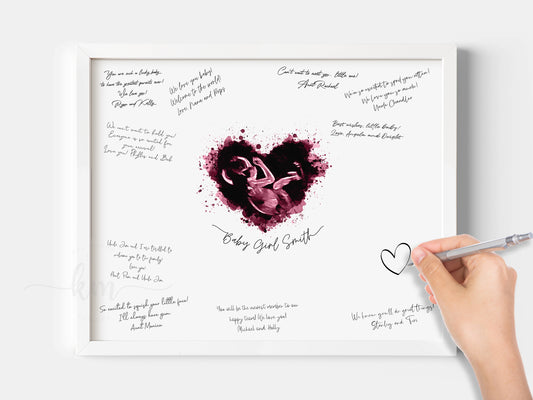 You are such a lucky baby
to have the greatest parents ever!
We love you!
Papa and Kelly
We love you baby!
Welcome to the world!
Love, Nana and Pops
Can't wait to meet you, little one!
Aunt Rachael
We're so excited to spoil you rotten!
We love you so much!
Uncle Chandler
Best wishes, little baby!
Love, Angela and Dwight
We can't wait to hold you!
Everyone is so excited for
your arrival!
Love you! Phyllis and Bob
Baby Girl Smith
Uncle Jim and I are thrilled to
welcome you to the family!
Love you!
Aunt Pam and Uncle Jim
km
So excited to squish your little face!
I'll always love you.
Aunt Monica
You will be the newest member to our
happy tribe! We love you!
Michael and Holly
We know you'll do great things!
Stanley and Teri